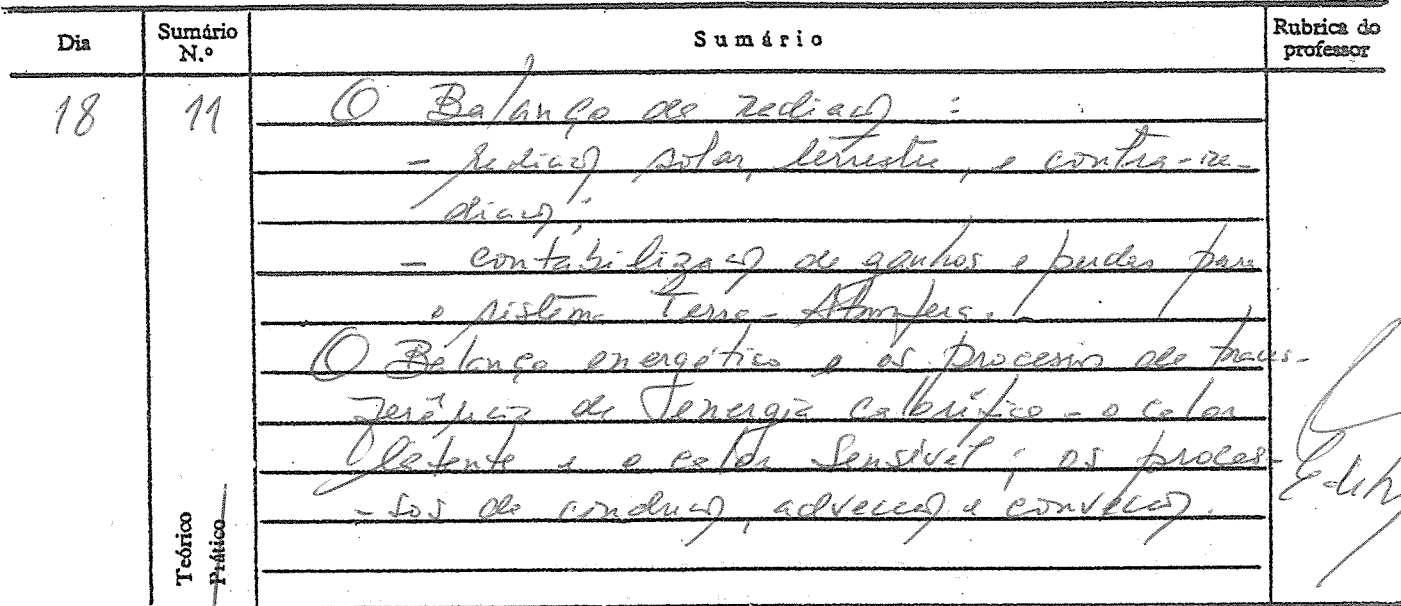 Dia Sumário N.º Sumário Rubrica do professor
18 11 O Balanço de radiação :
- radiação solar, terrestre, e contra-ra-
diação;
- contabilização de ganhos e perdas para
o sistema Terra-Atmosfera.
O Balanço energético e os processos de trans-
ferência de energia calorífica - o calor
latente e o calor sensível; os proces-
-sos de condução, advecção e convecção.
Teórico
Prático